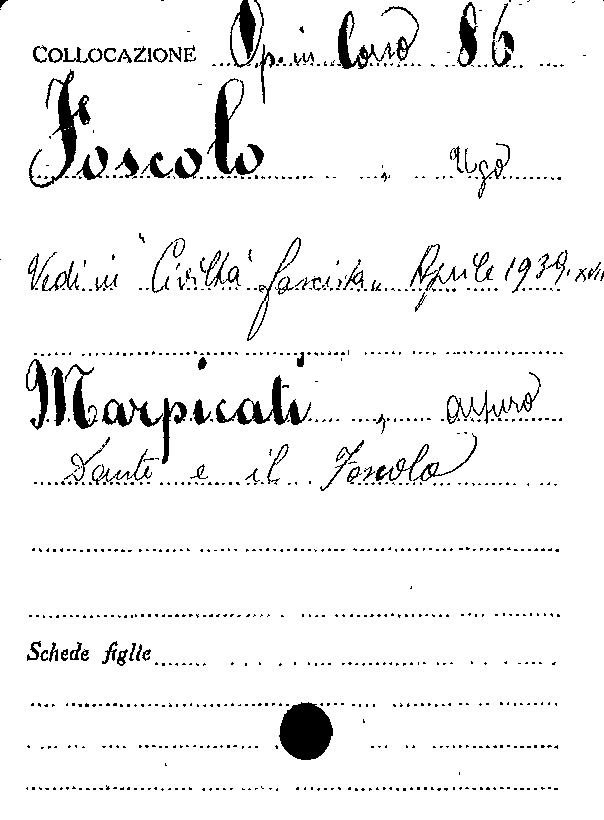 COLLOCAZIONE Op. in Corso 86
Foscolo, Ugo
Vedi in "Civiltà fascista" Aprile 1939. XVII
Marpicati, Arturo
Dante e il Foscolo
Schede figlie